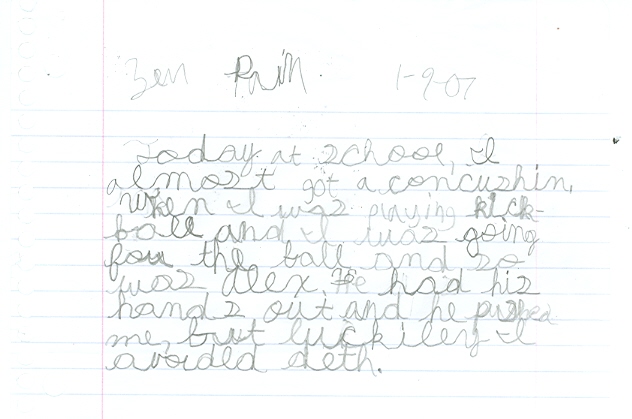 1-9-07
Today at school, I
almost got a concushin,
When I was playing kick-
ball and I was going
for the ball and so
was Alex. He had his
hands out and he pushed
me, but luckiley I
avoided deth.